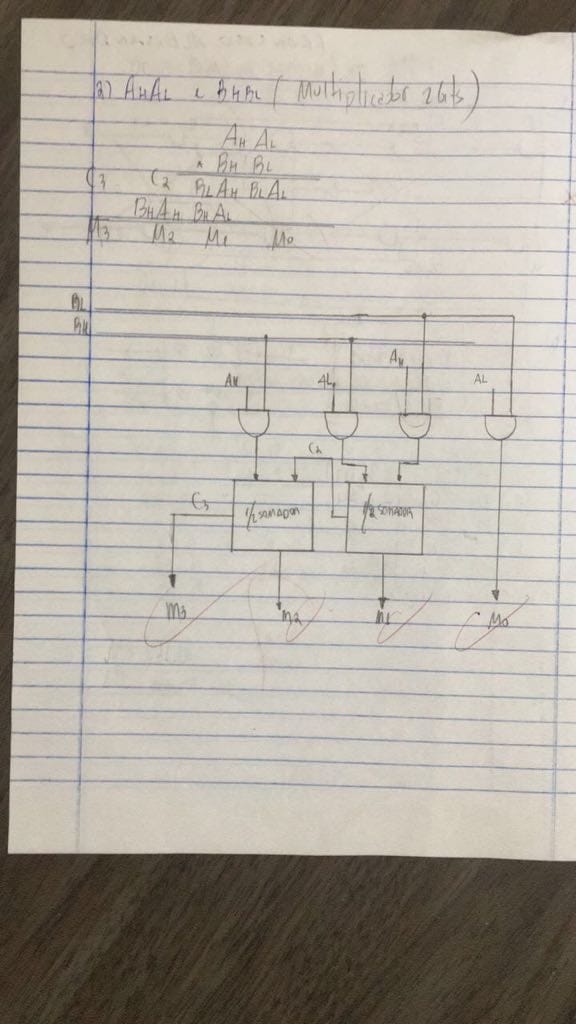 2) AHAL e BHBL (Multiplicador 2 bits)
AH AL
* BH BL
C3 C2 BLAH BLAL
BHAH BHAL
M3 M2 M1 M0
BL
BH
AH AL AH AL
C2
C3 1/2 SOMADOR 1/2 SOMADOR
M3 M2 M1 M0